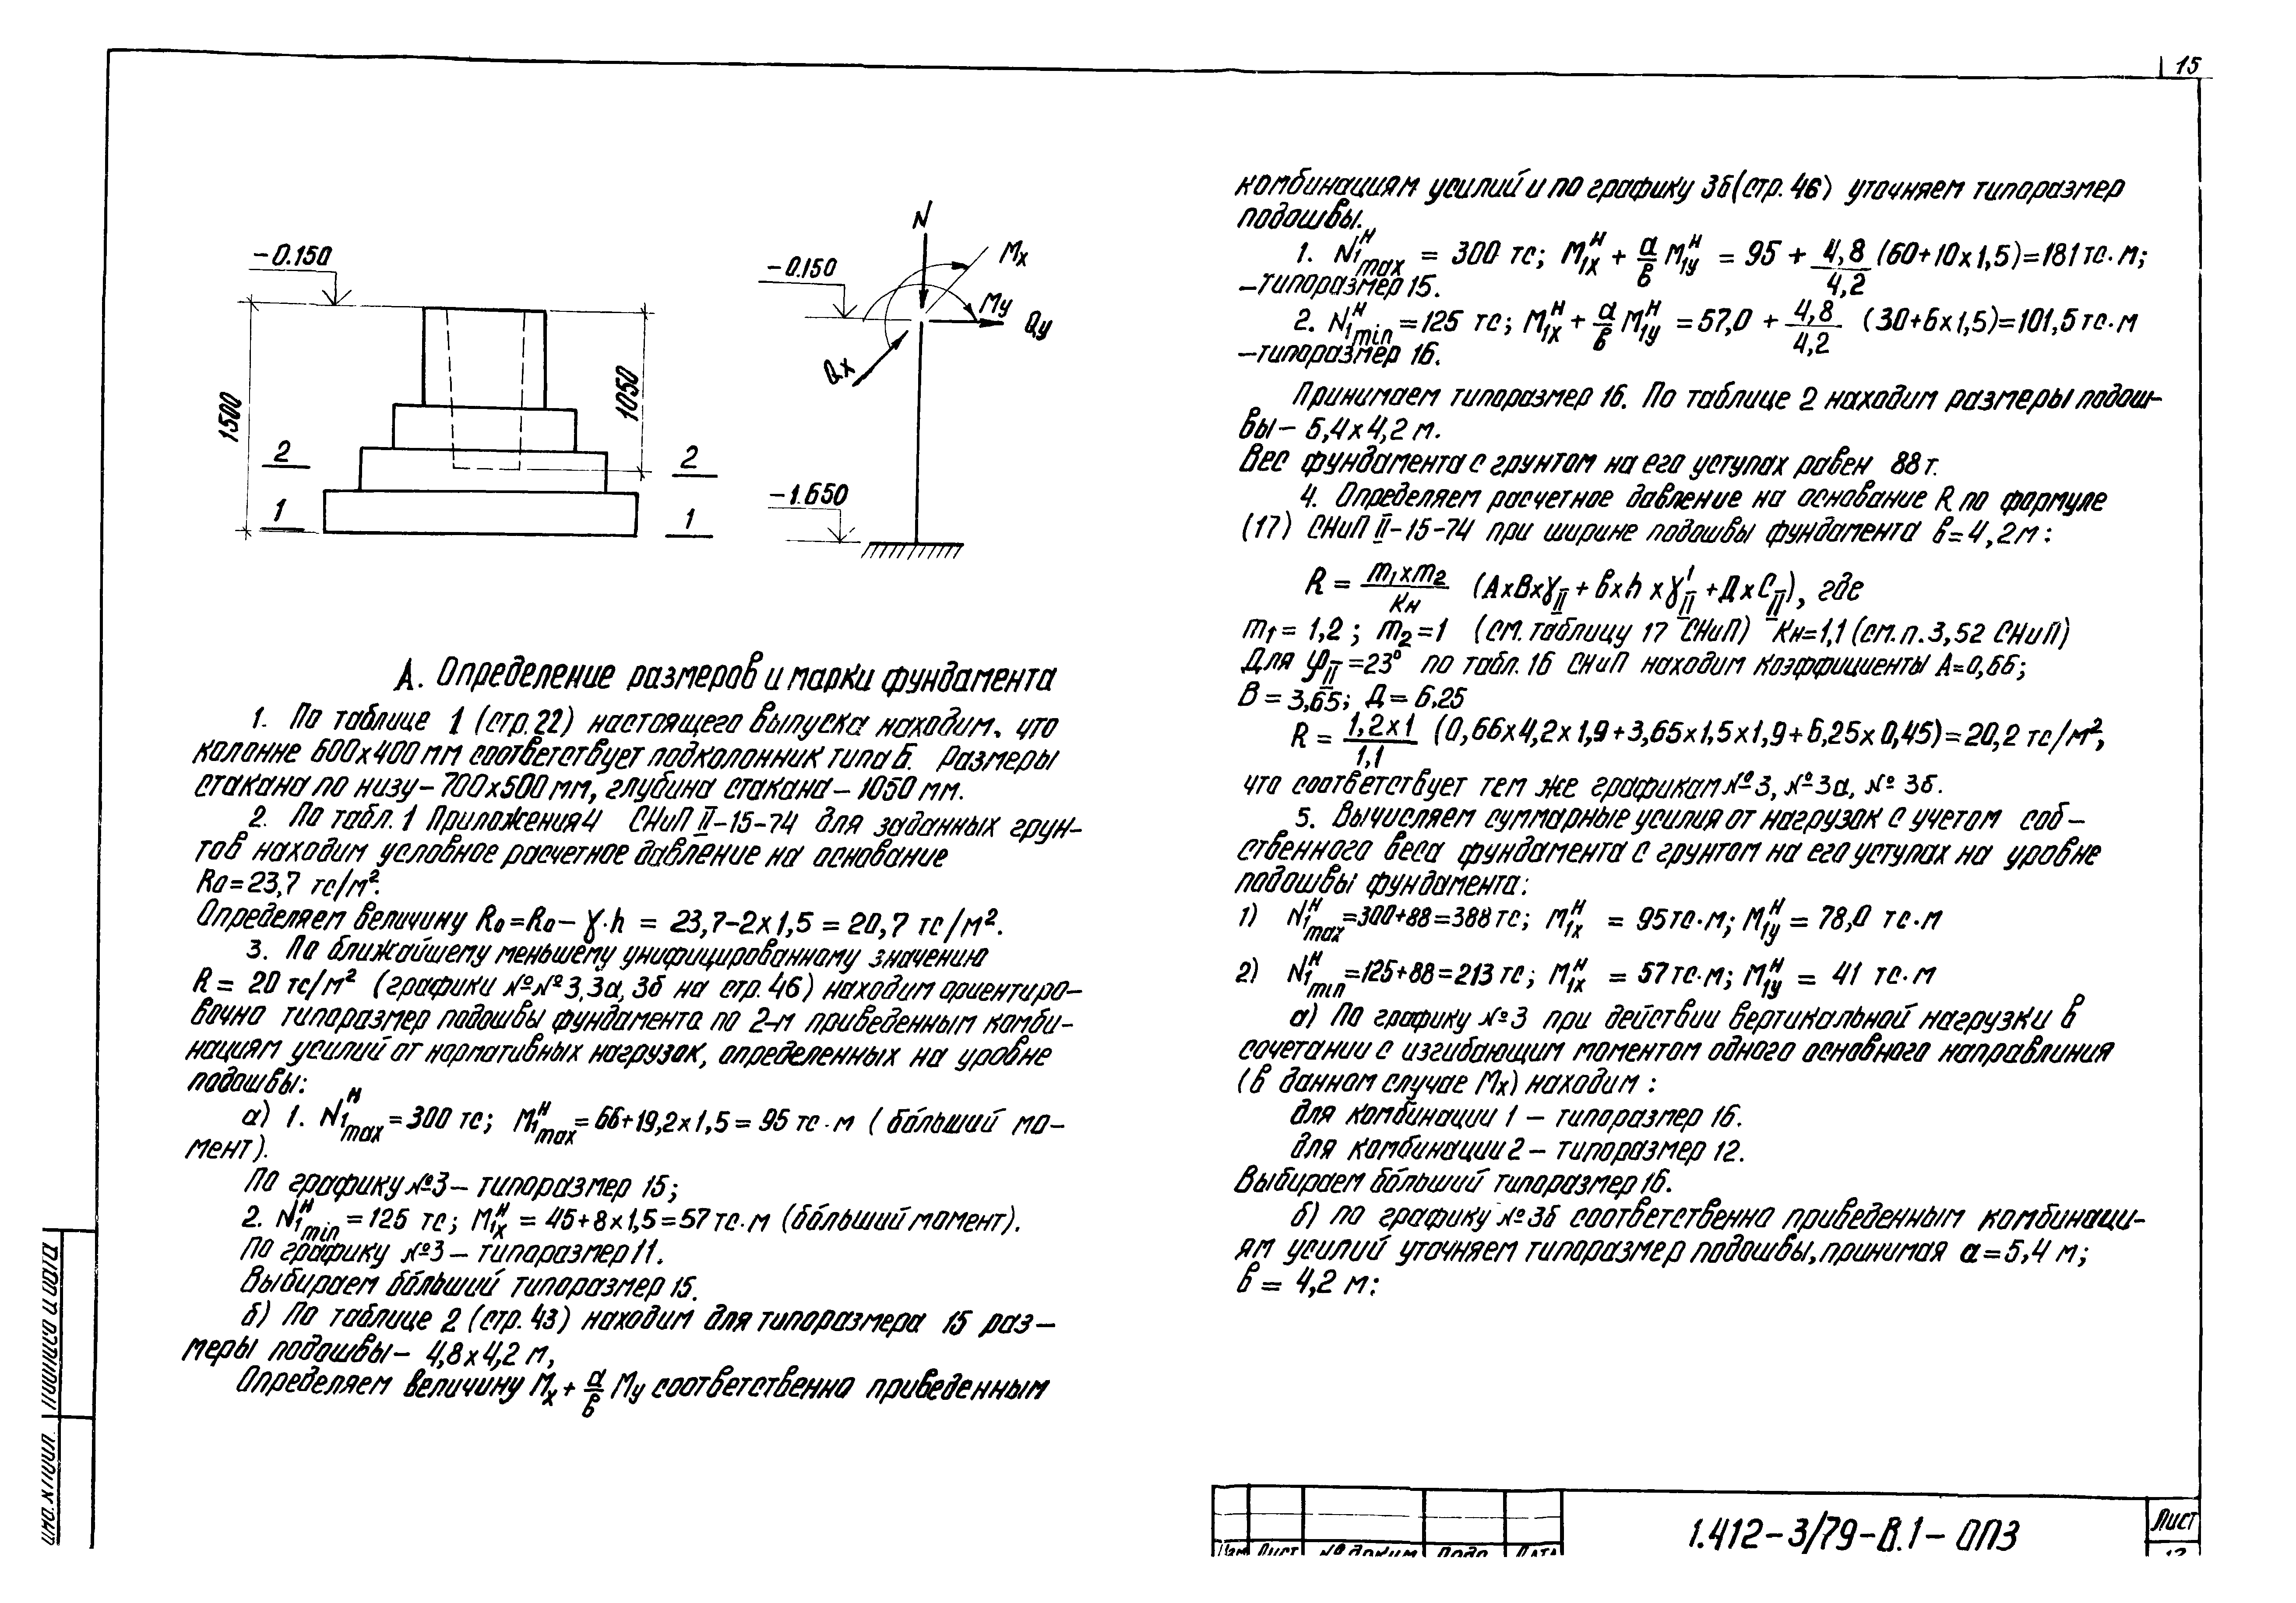 15
-0.150
1500
1050
2
2
1
1
N
Mx
-0.150
My
Qy
Qx
-1.650
А. Определение размеров и марки фундамента
1. По таблице 1 (стр. 22) настоящего выпуска находим, что
колонне 600х400 мм соответствует подколонник типа Б. Размеры
стакана по низу – 700х500 мм, глубина стакана – 1050 мм.
2. По табл. 1 Приложения 4 СНиП II-15-74 для заданных грун-
тов находим условное расчетное давление на основание
R₀ = 23,7 тс/м².
Определяем величину R₀ = R₀ – γ·h = 23,7-2х1,5 = 20,7 тс/м².
3. По ближайшему меньшему унифицированному значению
R = 20 тс/м² (графики №№ 3, 3а, 3б на стр. 46) находим ориентиро-
вочно типоразмер подошвы фундамента по 2-м приведенным комби-
нациям усилий от нормативных нагрузок, определенных на уровне
подошвы:
а) 1. N₁ᴴmax = 300 тс; M₁ᴴmax = 66+19,2х1,5 = 95 тс·м (бóльший мо-
мент).
По графику №3 – типоразмер 15;
2. N₁ᴴmin = 125 тс; M₁xᴴ = 45+8х1,5 = 57 тс·м (бóльший момент).
По графику №3 – типоразмер 11.
Выбираем бóльший типоразмер 15.
б) По таблице 2 (стр. 43) находим для типоразмера 15 раз-
меры подошвы – 4,8х4,2 м,
Определяем величину Mx + а/в My соответственно приведенным
комбинациям усилий и по графику 3б (стр. 46) уточняем типоразмер
подошвы.
1. N₁ᴴmax = 300 тс; M₁xᴴ + а/в M₁yᴴ = 95 + 4,8/4,2 (60+10х1,5) = 181 тс·м;
– типоразмер 15.
2. N₁ᴴmin = 125 тс; M₁xᴴ + а/в M₁yᴴ = 57,0 + 4,8/4,2 (30+6х1,5) = 101,5 тс·м
– типоразмер 16.
Принимаем типоразмер 16. По таблице 2 находим размеры подош-
вы – 5,4х4,2 м.
Вес фундамента с грунтом на его уступах равен 88 т.
4. Определяем расчетное давление на основание R по формуле
(17) СНиП II-15-74 при ширине подошвы фундамента в = 4,2 м:
R = m₁xm₂/Kн (АхВхγII + вхh х γ'II + ДхСII), где
m₁ = 1,2; m₂ = 1 (см. таблицу 17 СНиП) Kн = 1,1 (см. п. 3,52 СНиП)
Для φII = 23° по табл. 16 СНиП находим коэффициенты А = 0,66;
В = 3,65; Д = 6,25
R = 1,2х1/1,1 (0,66х4,2х1,9+3,65х1,5х1,9+6,25х0,45) = 20,2 тс/м²,
что соответствует тем же графикам №3, №3а, №3б.
5. Вычисляем суммарные усилия от нагрузок с учетом соб-
ственного веса фундамента с грунтом на его уступах на уровне
подошвы фундамента:
1) N₁ᴴmax = 300+88 = 388 тс; M₁xᴴ = 95 тс·м; M₁yᴴ = 78,0 тс·м
2) N₁ᴴmin = 125+88 = 213 тс; M₁xᴴ = 57 тс·м; M₁yᴴ = 41 тс·м
а) По графику №3 при действии вертикальной нагрузки в
сочетании с изгибающим моментом одного основного направлиния
(в данном случае Mx) находим:
для комбинации 1 – типоразмер 16.
для комбинации 2 – типоразмер 12.
Выбираем бóльший типоразмер 16.
б) по графику №3б соответственно приведенным комбинаци-
ям усилий уточняем типоразмер подошвы, принимая а = 5,4 м;
в = 4,2 м:
Инв. № подл.
Подпись и дата
Изм Лист № докум Подп Дата
1.412-3/79-В.1-ОПЗ
Лист